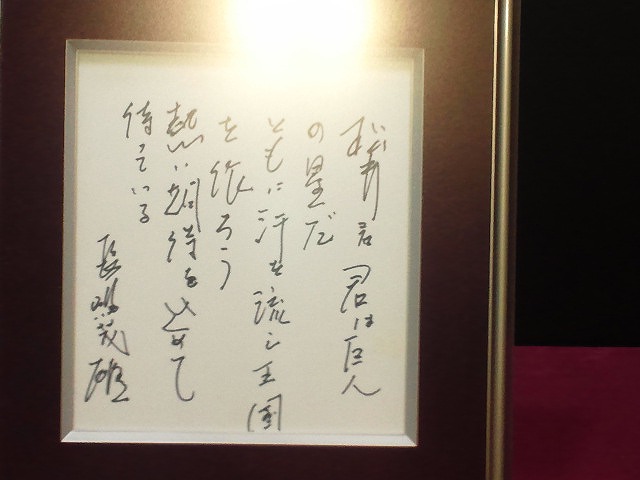 松井君 君は巨人
の星だ
ともに汗を流し王国
を作ろう
熱い期待を込めて
待っている
長嶋茂雄